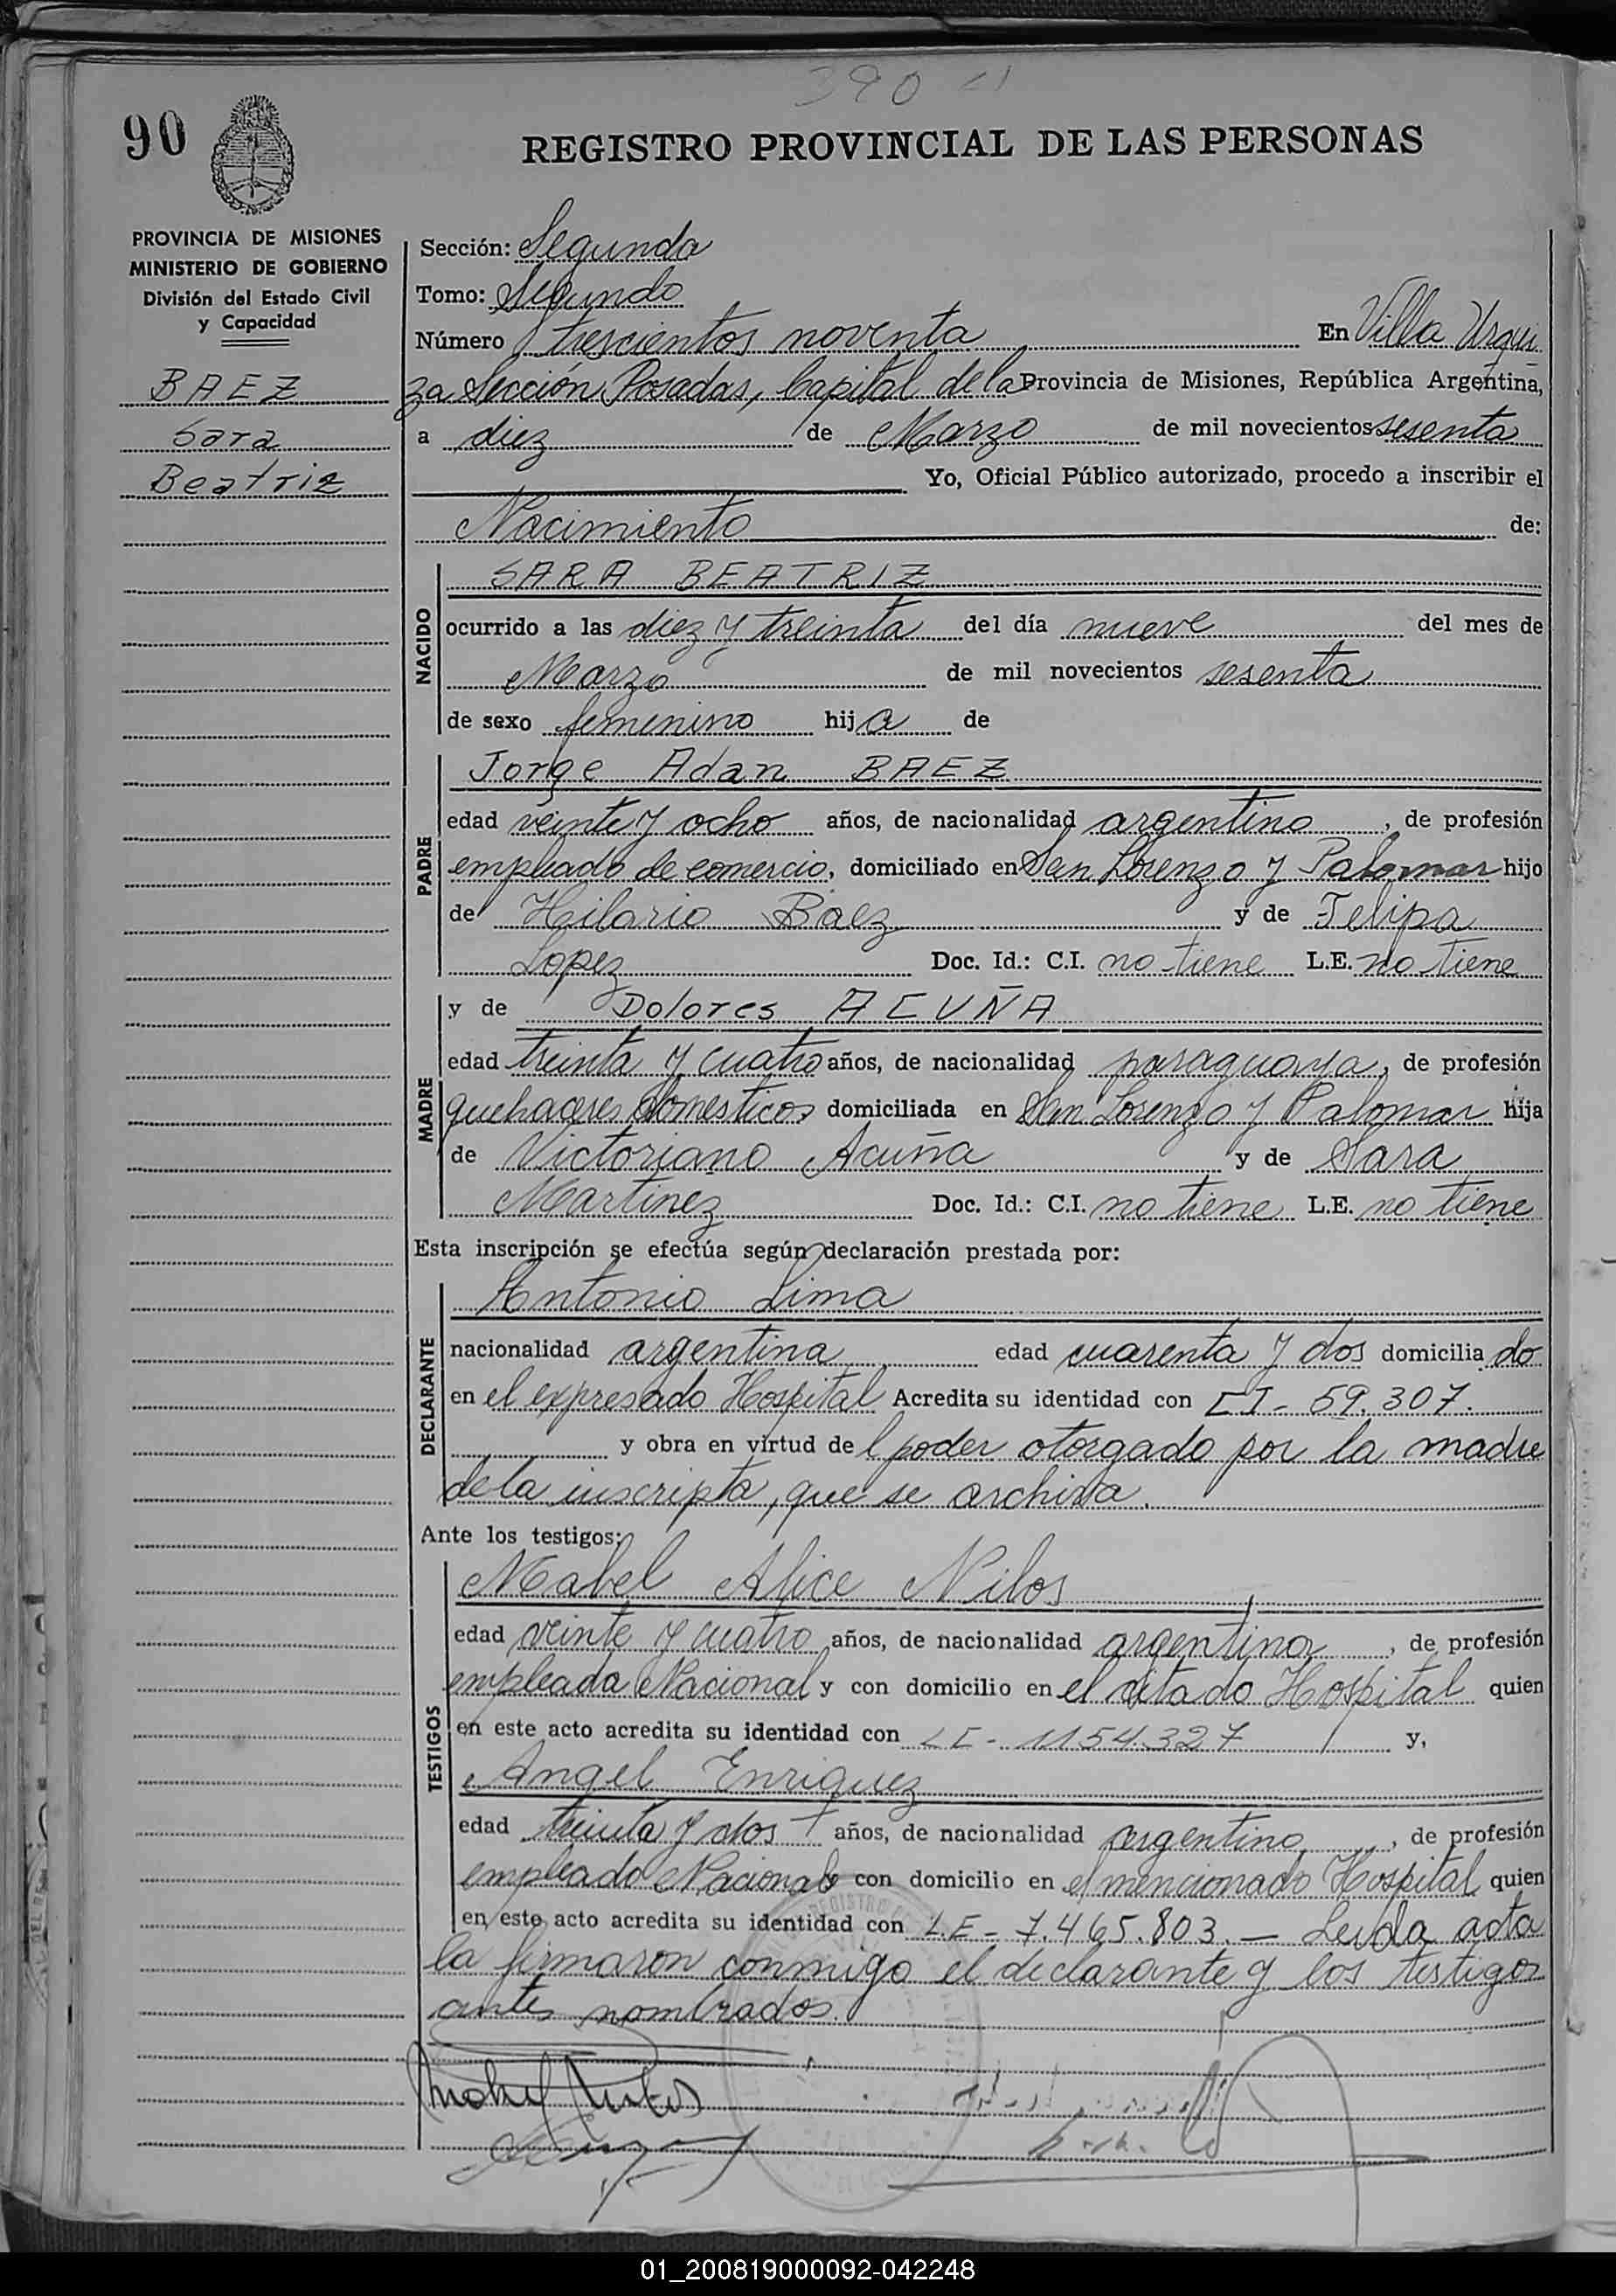 390
90
REGISTRO PROVINCIAL DE LAS PERSONAS
PROVINCIA DE MISIONES
MINISTERIO DE GOBIERNO
División del Estado Civil
y Capacidad
BAEZ
Sara
Beatriz
Sección: Segunda
Tomo: Segundo
Número trescientos noventa En Villa Urqui
za Sección Posadas, Capital de la Provincia de Misiones, República Argentina,
a diez de Marzo de mil novecientos sesenta
Yo, Oficial Público autorizado, procedo a inscribir el
Nacimiento de:
NACIDO
SARA BEATRIZ
ocurrido a las diez y treinta del día nueve del mes de
Marzo de mil novecientos sesenta
de sexo femenino hija de
PADRE
Jorge Adan BAEZ
edad veinte y ocho años, de nacionalidad argentino, de profesión
empleado de comercio, domiciliado en San Lorenzo y Palomar hijo
de Hilario Baez y de Felipa
Lopez Doc. Id.: C.I. no tiene L.E. no tiene
MADRE
y de Dolores ACUÑA
edad treinta y cuatro años, de nacionalidad paraguaya, de profesión
quehaceres domesticos domiciliada en San Lorenzo y Palomar hija
de Victoriano Acuña y de Sara
Martinez Doc. Id.: C.I. no tiene L.E. no tiene
Esta inscripción se efectúa según declaración prestada por:
DECLARANTE
Antonio Lima
nacionalidad argentina edad cuarenta y dos domiciliado
en el expresado Hospital Acredita su identidad con CI - 59.307.
y obra en virtud del poder otorgado por la madre
de la inscripta, que se archiva.
Ante los testigos:
TESTIGOS
Mabel Alice Nilos
edad veinte y cuatro años, de nacionalidad argentina, de profesión
empleada Nacional y con domicilio en el citado Hospital quien
en este acto acredita su identidad con LC - 1154.327 y,
Angel Enriquez
edad treinta y dos años, de nacionalidad argentino, de profesión
empleado Nacional y con domicilio en el mencionado Hospital quien
en este acto acredita su identidad con L.E - 7.465.803. - Leida acta
la firmaron conmigo el declarante y los testigos
antes nombrados.
01_200819000092-042248